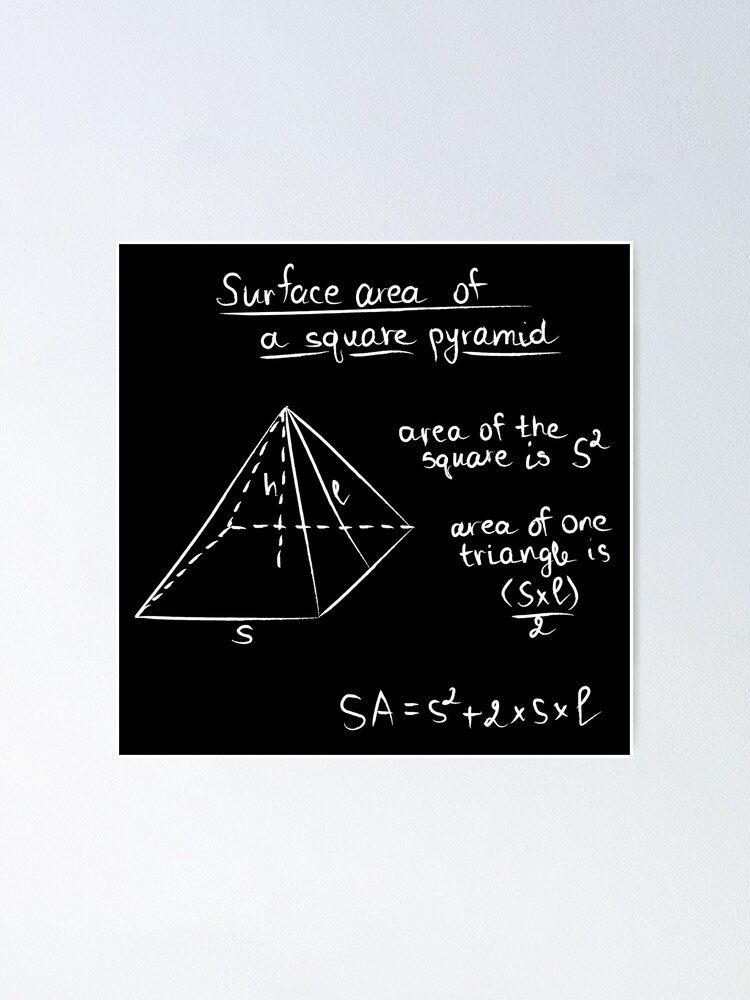 Surface area of
a square pyramid
area of the
square is S²
h
l
area of one
triangle is
(S×l)
2
S
SA = S² + 2 × S × l